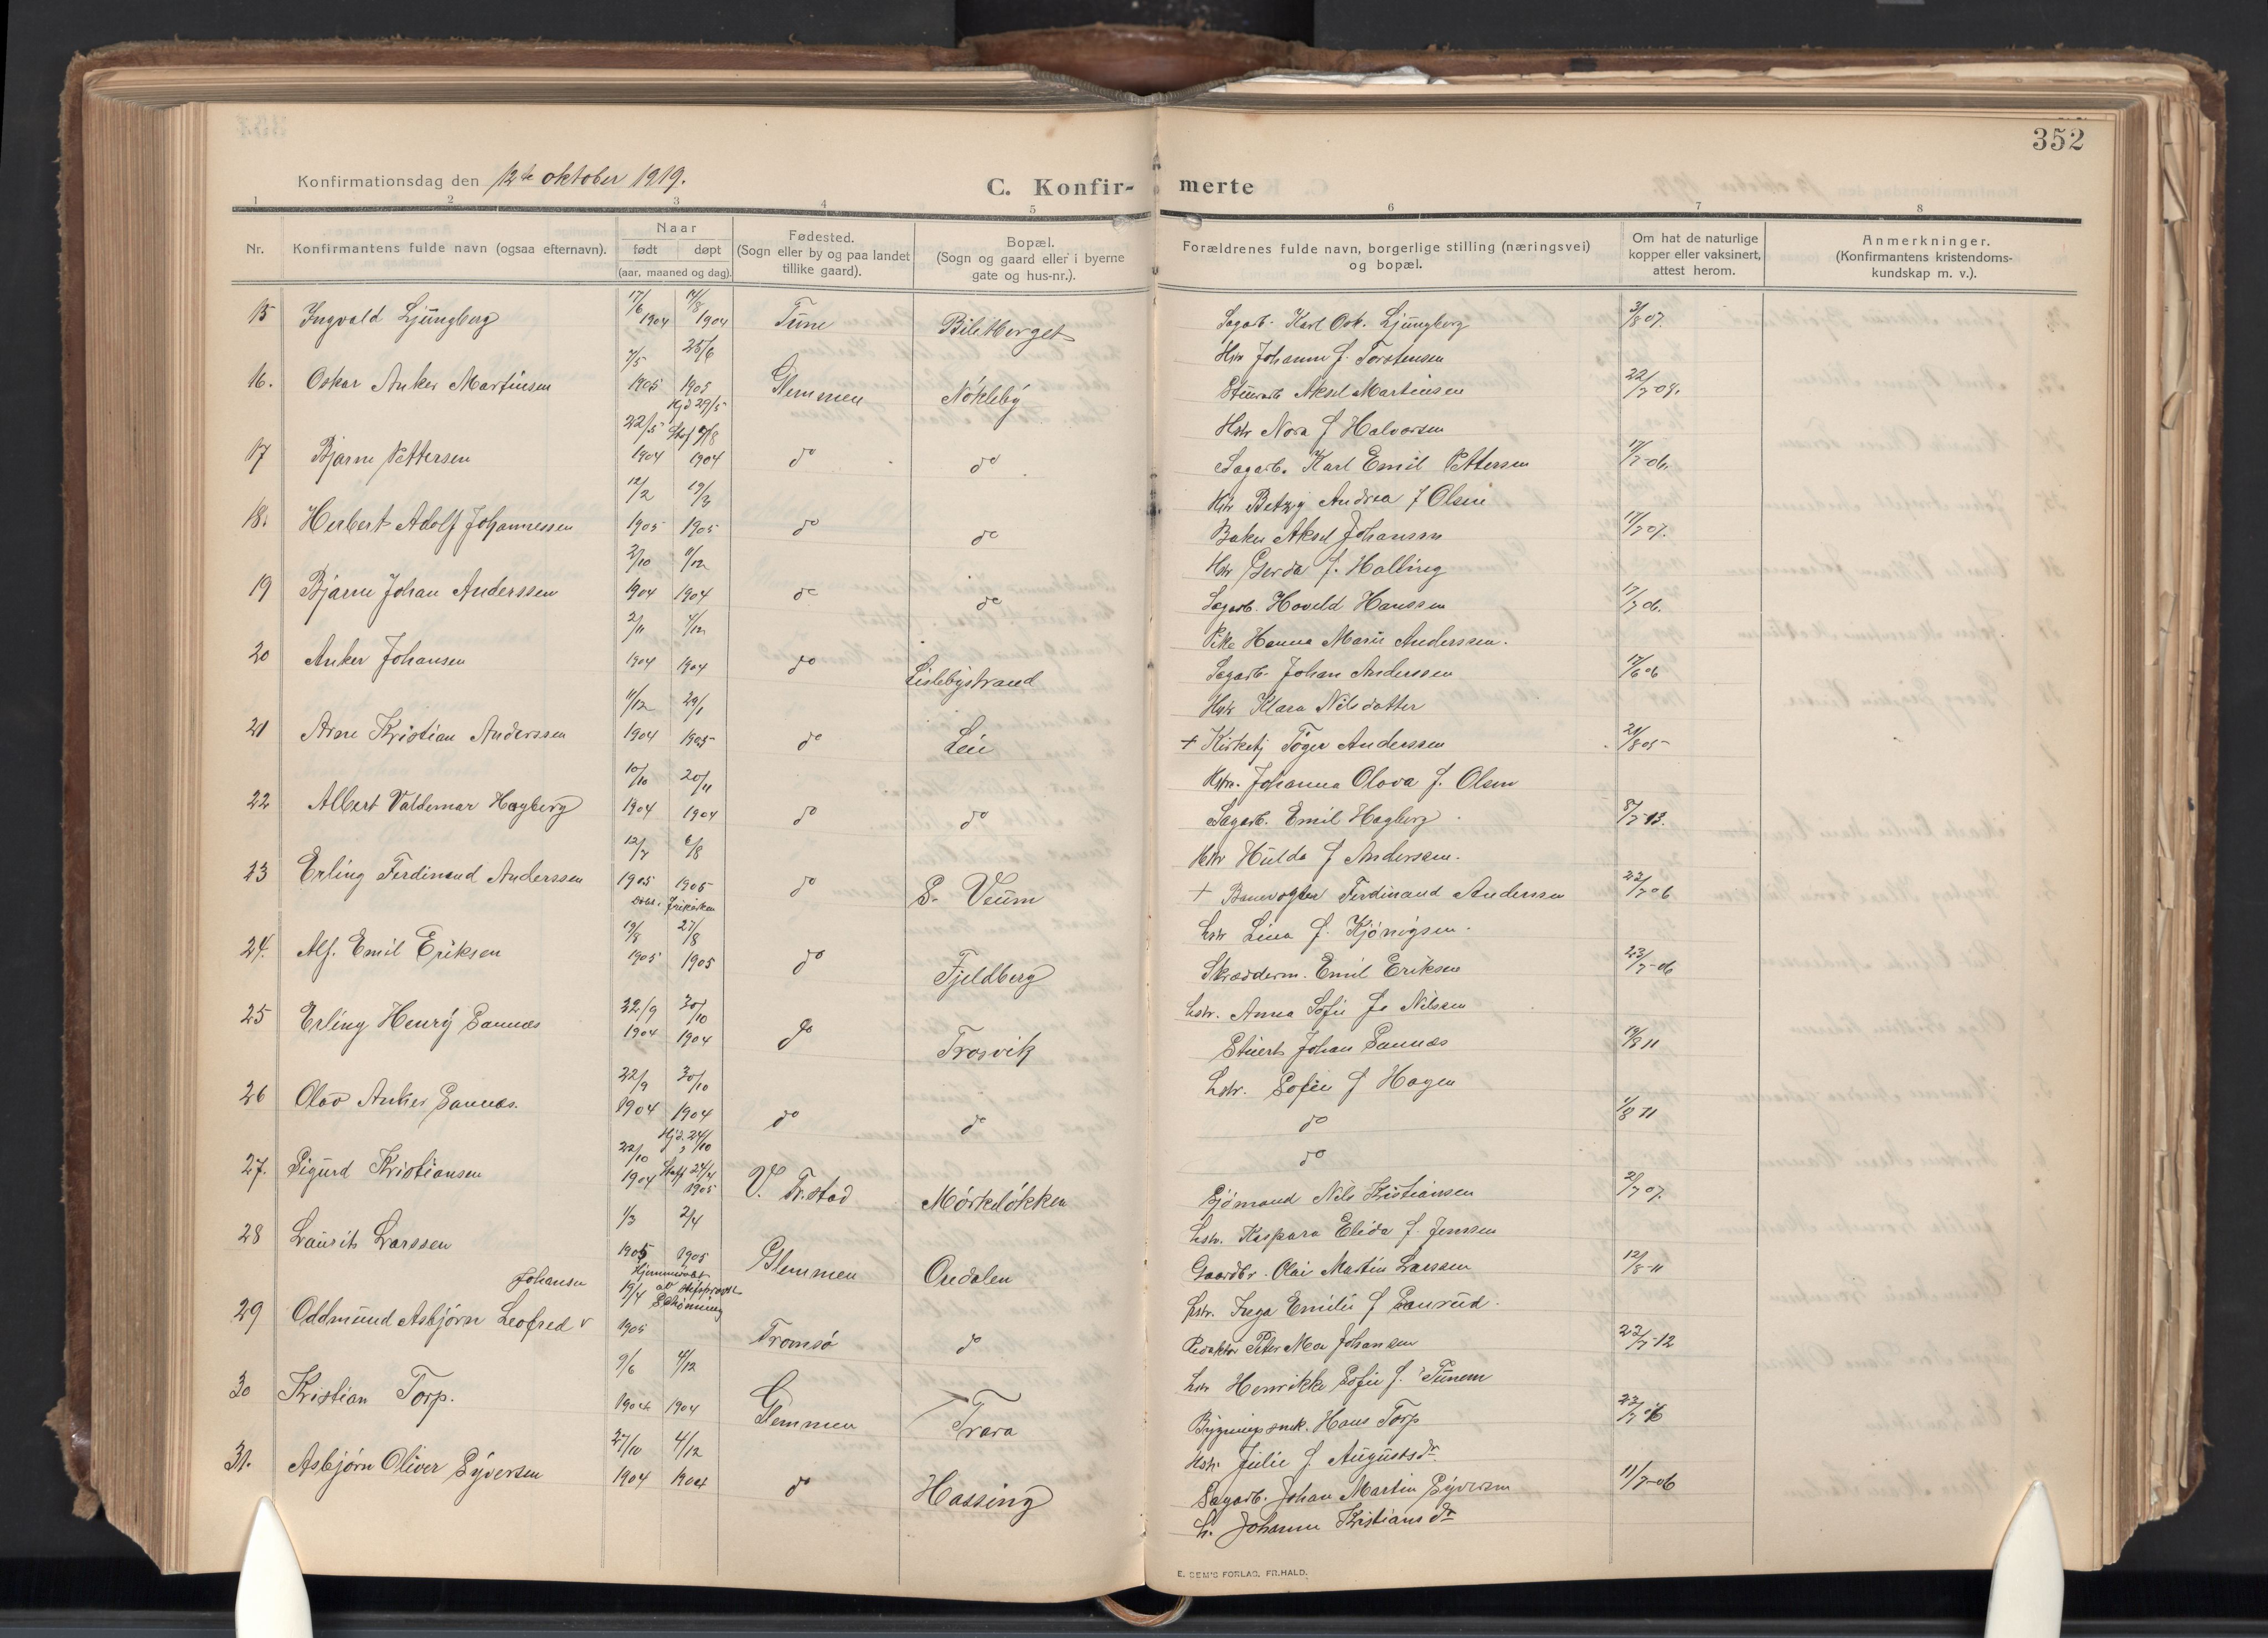 352
Konfirmationsdag den 12te oktober 1919.
C. Konfir- merte
1 2 3 4 5 6 7 8
Nr.
Konfirmantens fulde navn (ogsaa efternavn).
Naar
født døpt
(aar, maaned og dag).
Fødested.
(Sogn eller by og paa landet
tillike gaard).
Bopæl.
(Sogn og gaard eller i byerne
gate og hus-nr.).
Forældrenes fulde navn, borgerlige stilling (næringsvei)
og bopæl.
Om hat de naturlige
kopper eller vaksinert,
attest herom.
Anmerkninger.
(Konfirmantens kristendoms-
kundskap m. v.).
15 Ingvald Ljungberg 17/6 1904 14/8 1904 Tune Sagarb. Karl Osk. Ljungberg 3/8 07.
Hstr Johanne f. Torstensen
16. Oskar Anker Martinsen 1905 25/6 1905 Glemmen Nökleby Stuearb Aksel Martinsen
Hstr Nora f Halvorsen
17 Bjarne Pettersen 22/5 1904 Hjd 29/5 1904 do do Sagarb. Karl Emil Pettersen 17/7-06.
Hstr Betzy Andrea f Olsen
18. Herbert Adolf Johannessen 12/2 1905 19/3 1905 do do Baker Aksel Johansen
Hstr Gerda f. Halling
19 Bjarne Johan Anderssen 2/10 1904 1904 do do Sagarb. Hanssen 17/7 06.
Pike Hanna Marie Anderssen.
20 Anker Johansen 2/11 1904 1904 do Lislebystrand Sagarb- Johan Anderssen 17/6 06
Hstr Klara Nilsdatter
21 Arne Kristian Anderssen 11/12 1904 29/1 1905 do Leie + Kirketj Töger Anderssen 21/8 05-
Hstr. Johanna Olava f. Olsen
22 Albert Valdemar Hagberg 10/10 1904 20/11 1904 do do Sagarb. Emil Hagberg 8/7-13.
Hstr Hulda f Anderssen.
23 Erling Ferdinand Anderssen 12/7 1905 6/8 1905 do S. Veum + Banevogter Ferdinand Anderssen 22/7 06
frikirken
hstr Lina f. Kjönigsen.
24. Alf. Emil Eriksen 19/8 1905 27/8 1905 do Fjeldberg Skrædderm. Emil Eriksen 23/7-06
hstr. Anna Sofie f. Nilssen
25 Erling Henry Sannæs 22/9 1904 30/10 1904 do Trosvik Stuert Johan Sannæs
hstr. Sofie f Hagen
26 Olav Anker Sannæs. 22/9 1904 30/10 1904 do do do
do
27. Sigurd Kristiansen 22/10 1904 Hjd. 24/10 1905 V. Fr.stad Mörkelökken Sjömand Nils Kristiansen
hstr. Kaspara Elida f. Jenssen
28 Laurits Larssen 1/3 1905 2/4 1905 Glemmen Ondalen Gaardbr. Olai Martin Larssen 12/8-11
hstr. Inga Emilie f Sanrud.
29 Oddmund Asbjørn Leofred v Johansen 19/4 1905 Hjemmedøbt av stiftsprovst Schönning Tromsö do Redaktör Peter Moe Johansen 22/7-12
hstr Henrikke Sofie f.
30 Kristian Torp. 9/6 1904 4/12 1904 Glemmen Trara Bygningssnek. Hans Torp
Hstr. Julie f. Augustsdr
31. Asbjørn Oliver Syversen 27/10 1904 4/12 1904 do Hassing Sagarb. Johan Martin Syversen 11/7-06
h. Johanne Kristiansdr
E. SEM'S FORLAG, FR.HALD.